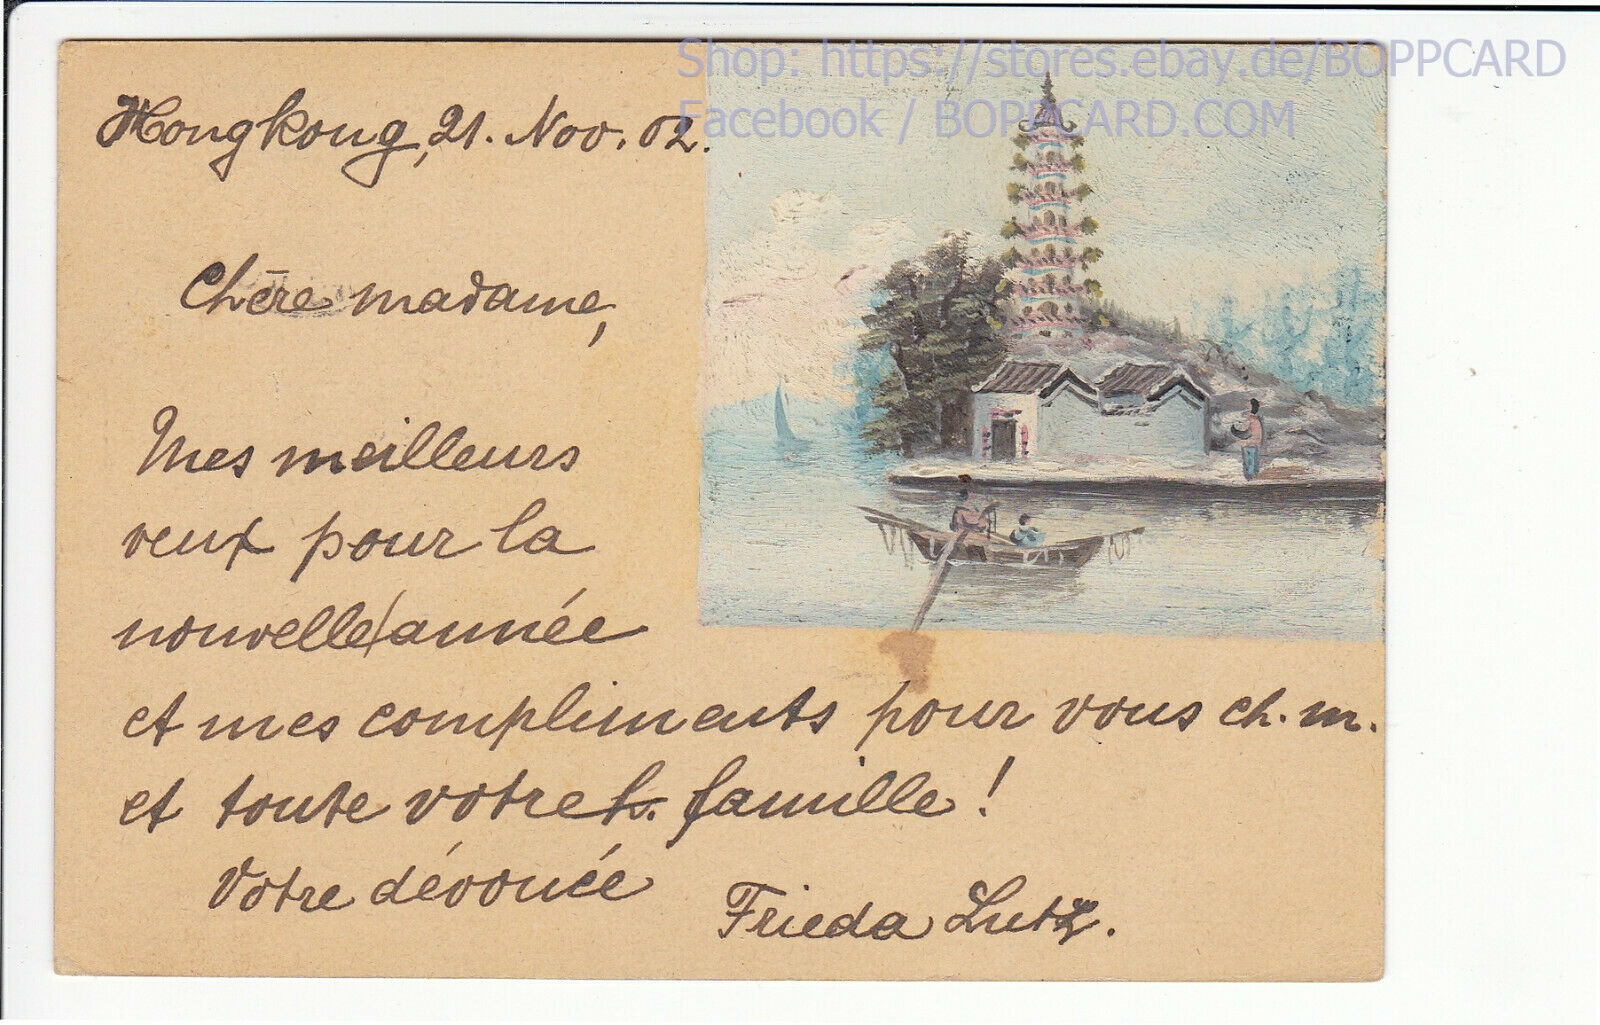 Shop: https://stores.ebay.de/BOPPCARD
Facebook / BOPPCARD.COM
Hongkong, 21. Nov. 02.
Chère madame,
Mes meilleurs
veux pour la
nouvelle/année
et mes compliments pour vous ch. m.
et toute votre h. famille!
Votre dévouée
Frieda Lutz.